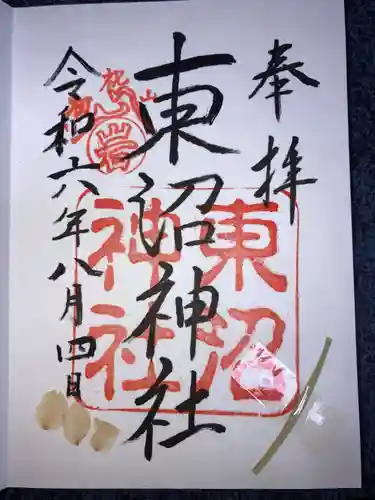 奉拝
東沼神社
令和六年八月四日
東沼
神社